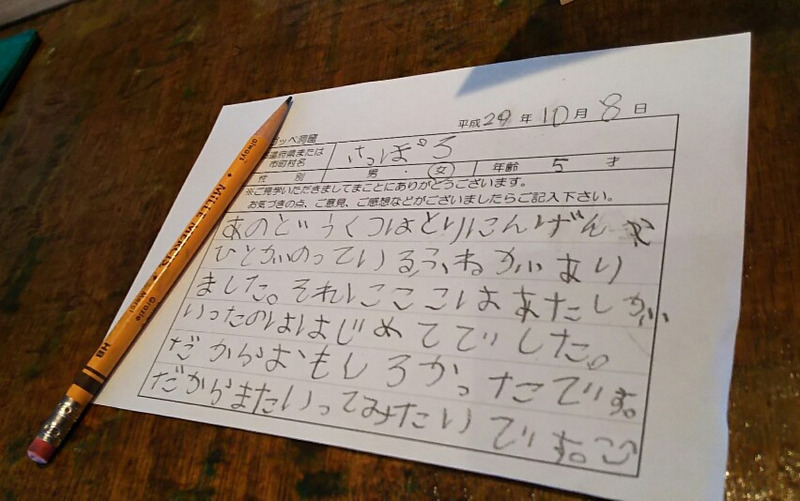 平成29年10月8日
ッペ洞窟
道府県または
市町村名 さっぽろ
性別 男・女 年齢 5 才
※ご見学いただきましてまことにありがとうございます。
お気づきの点、ご意見、ご感想などがございましたらご記入下さい。
あのどうくつはとりにんげんや
ひとがのっているふねがあり
ました。それにここはあたしが
いったのははじめてでした。
だからおもしろかったです。
だからまたいってみたいです。
always MILLE MERCIS Merci Grazie HB